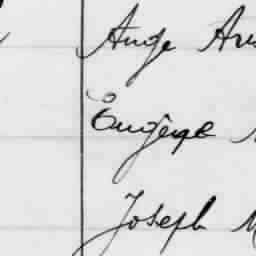 Ange
Eugène
Joseph M